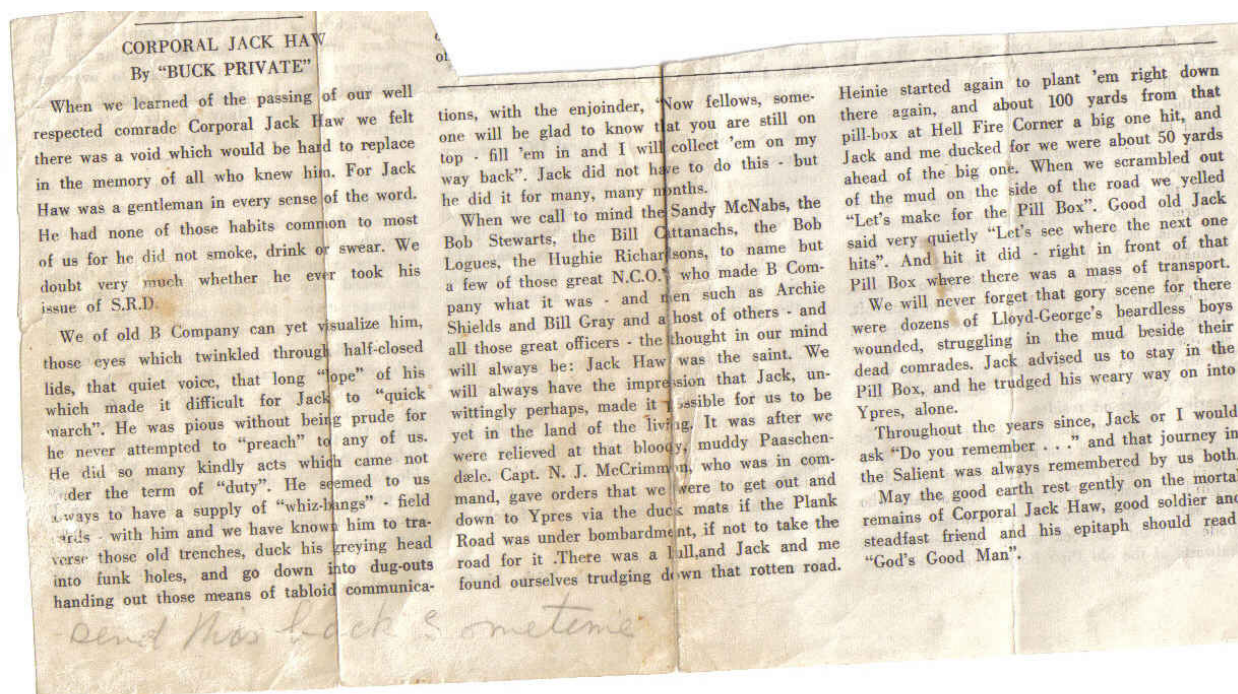 CORPORAL JACK HAW
By "BUCK PRIVATE"
When we learned of the passing of our well
respected comrade Corporal Jack Haw we felt
there was a void which would be hard to replace
in the memory of all who knew him. For Jack
Haw was a gentleman in every sense of the word.
He had none of those habits common to most
of us for he did not smoke, drink or swear. We
doubt very much whether he ever took his
issue of S.R.D.
We of old B Company can yet visualize him,
those eyes which twinkled through half-closed
lids, that quiet voice, that long "lope" of his
which made it difficult for Jack to "quick
march". He was pious without being prude for
he never attempted to "preach" to any of us.
He did so many kindly acts which came not
under the term of "duty". He seemed to us
always to have a supply of "whiz-bangs" - field
cards - with him and we have known him to tra-
verse those old trenches, duck his greying head
into funk holes, and go down into dug-outs
handing out those means of tabloid communica-
tions, with the enjoinder, "Now fellows, some-
one will be glad to know that you are still on
top - fill 'em in and I will collect 'em on my
way back". Jack did not have to do this - but
he did it for many, many months.
When we call to mind the Sandy McNabs, the
Bob Stewarts, the Bill Cattanachs, the Bob
Logues, the Hughie Richardsons, to name but
a few of those great N.C.O.'s who made B Com-
pany what it was - and men such as Archie
Shields and Bill Gray and a host of others - and
all those great officers - the thought in our mind
will always be: Jack Haw was the saint. We
will always have the impression that Jack, un-
wittingly perhaps, made it possible for us to be
yet in the land of the living. It was after we
were relieved at that bloody, muddy Paaschen-
dælc. Capt. N. J. McCrimmon, who was in com-
mand, gave orders that we were to get out and
down to Ypres via the duck mats if the Plank
Road was under bombardment, if not to take the
road for it .There was a lull,and Jack and me
found ourselves trudging down that rotten road.
Heinie started again to plant 'em right down
there again, and about 100 yards from that
pill-box at Hell Fire Corner a big one hit, and
Jack and me ducked for we were about 50 yards
ahead of the big one. When we scrambled out
of the mud on the side of the road we yelled
"Let's make for the Pill Box". Good old Jack
said very quietly "Let's see where the next one
hits". And hit it did - right in front of that
Pill Box where there was a mass of transport.
We will never forget that gory scene for there
were dozens of Lloyd-George's beardless boys
wounded, struggling in the mud beside their
dead comrades. Jack advised us to stay in the
Pill Box, and he trudged his weary way on into
Ypres, alone.
Throughout the years since, Jack or I would
ask "Do you remember . . ." and that journey in
the Salient was always remembered by us both.
May the good earth rest gently on the mortal
remains of Corporal Jack Haw, good soldier and
steadfast friend and his epitaph should read
"God's Good Man".
send this back sometime